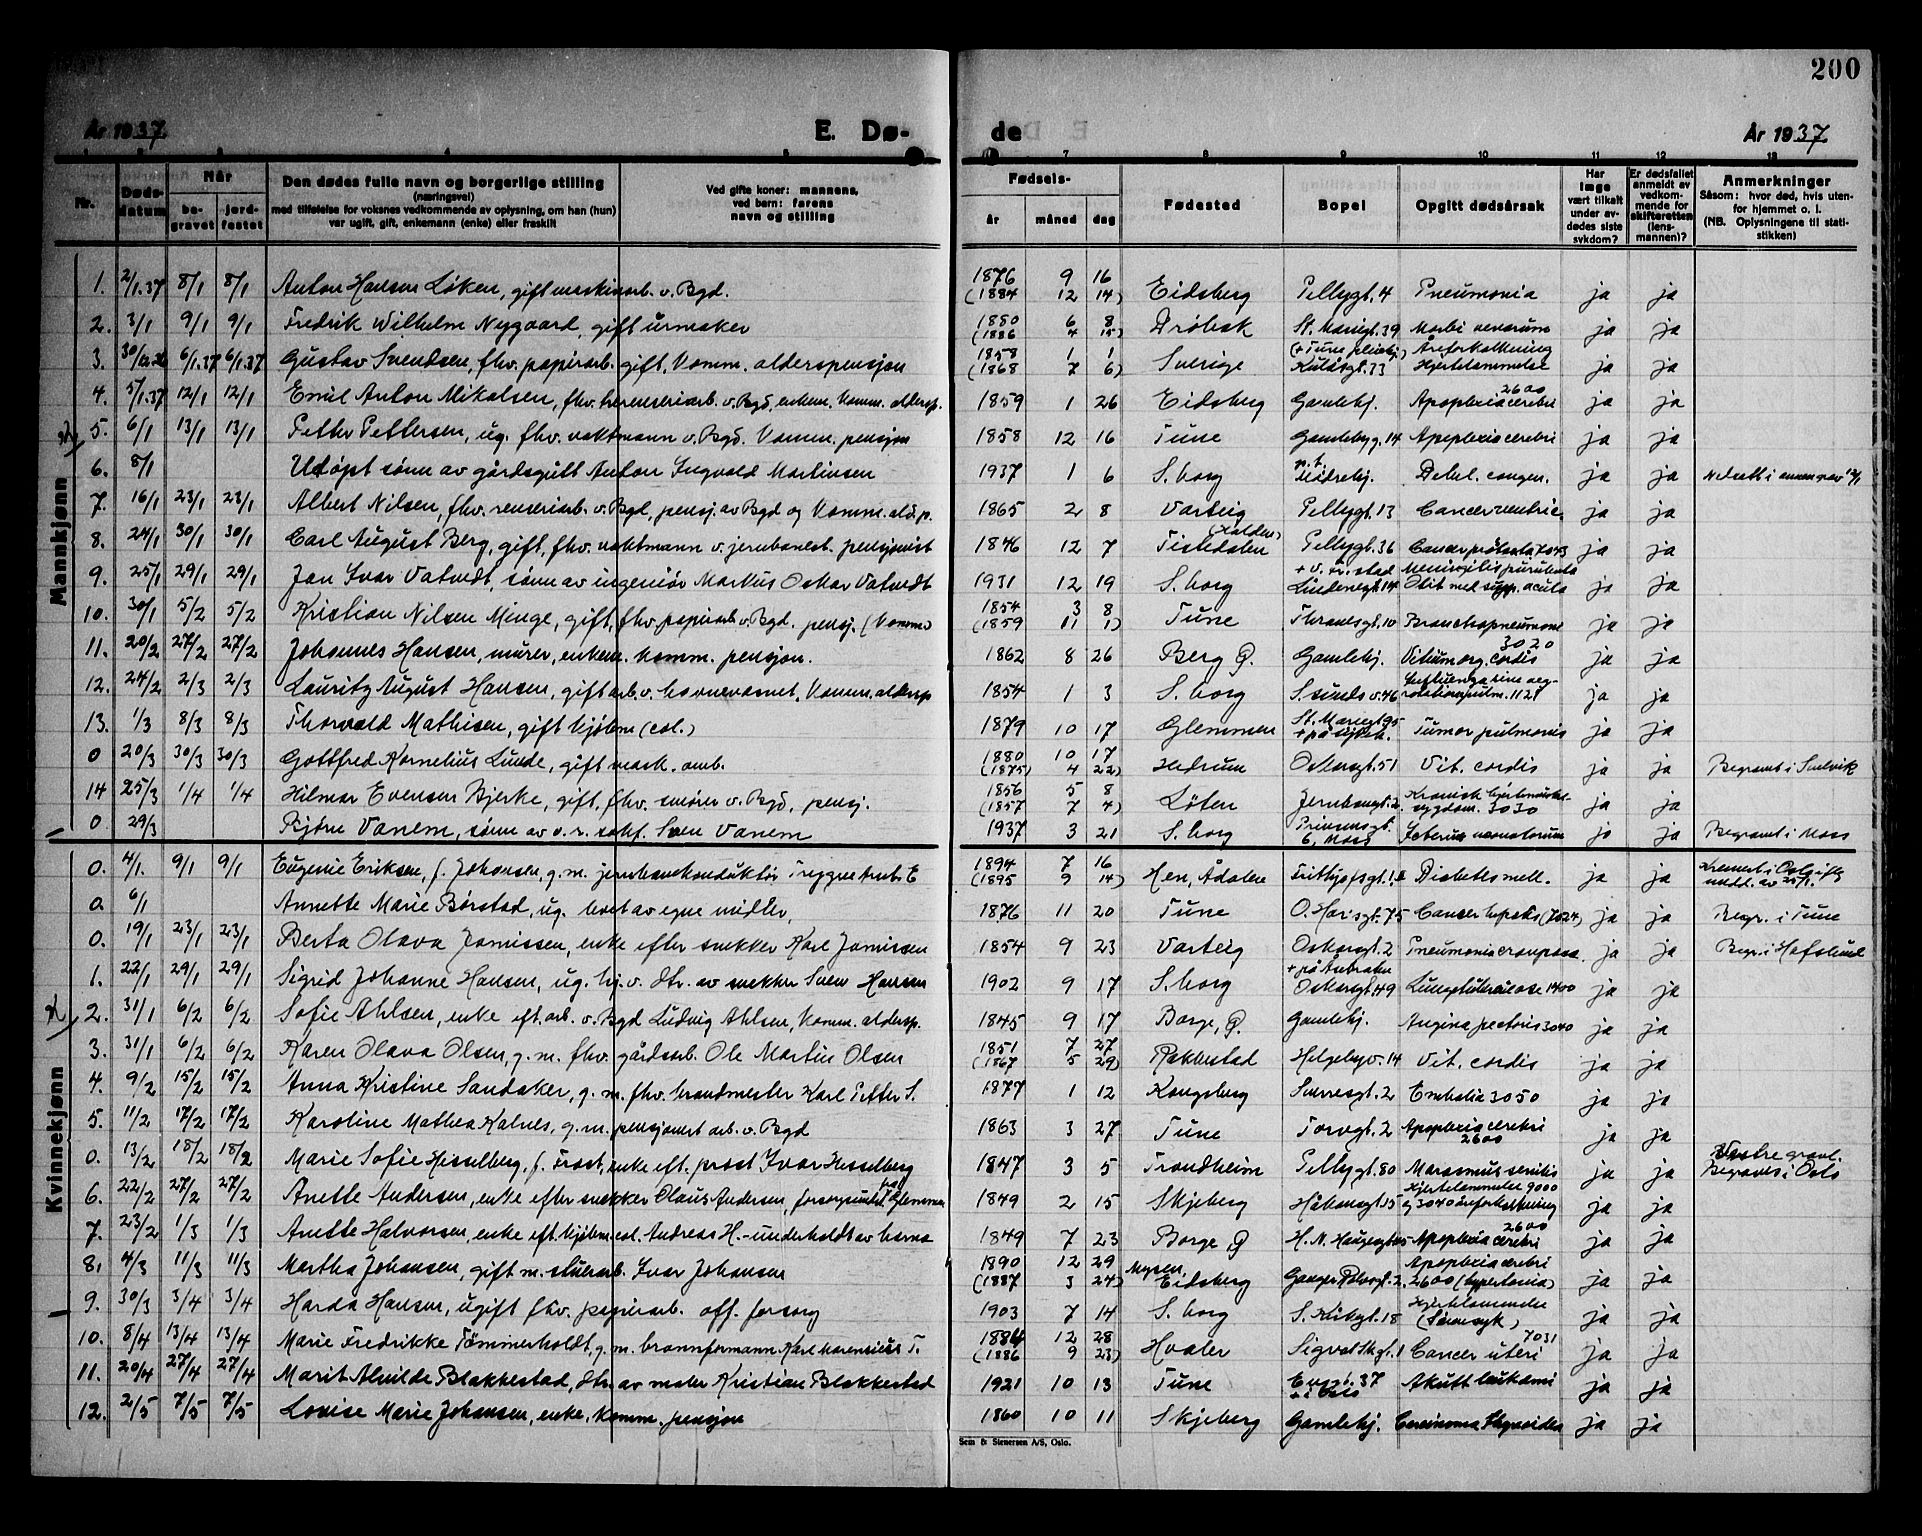 200
År 1937 E. Dø- de År 1937
7 8 9 10 11 12 13
Nr. Døds-datum Når be-gravet jord-festet Den dødes fulle navn og borgerlige stilling (næringsvei) med tilføielse for voksnes vedkommende av oplysning, om han (hun) var ugift, gift, enkemann (enke) eller fraskilt Ved gifte koner: mannens, ved barn: farens navn og stilling Fødsels- år måned dag Fødested Bopel Opgitt dødsårsak Har læge vært tilkalt under av-dødes siste sykdom? Er dødsfallet anmeldt av vedkom-mende for skifteretten (lens-mannen)? Anmerkninger Såsom: hvor død, hvis uten-for hjemmet o. l. (NB. Oplysningene til stati-stikken)
Mannkjønn
1. 2/1.37 8/1 8/1 Anton Hansen Løken, gift maskinarb. v. Bgd. 1876 9 16 (1884 12 14) Eidsberg Pellygt. 4 Pneumonia ja ja
2. 3/1 9/1 9/1 Fredrik Wilhelm Nygaard, gift urmaker 1880 6 8 (1886 4 15) Drøbak St. Mariegt. 39 Morbi nervorum ja ja
3. 30/12.36 6/1.37 6/1.37 Gustav Svendsen, fhv. papirarb. gift. Komm. alderspensjon 1858 1 1 (1868 7 6) Sverige (+ Tune pleiehj.) Kulåsgt. 33 Åreforkalkning Hjertelammelse ja ja
4. 5/1.37 12/1 12/1 Emil Anton Mikalsen, fhv. renseriarb. v. Bgd, enkem. Komm. aldersp. 1859 1 26 Eidsberg Gamlehj. Apoplexia cerebri 2600 ja ja
5. 6/1 13/1 13/1 Petter Pettersen, ug. fhv. vaktmann v. Bgd. Komm. pensjon 1858 12 16 Tune Gamlebyg. 14 Apoplexia cerebri ja ja
6. 8/1 Udøpt sønn av gårdsgutt Anton Ingvald Martinsen 1937 1 6 S.borg p.t. Mødrehj. Debil. congen. ja ja Nedsatt i annen grav 12/1
7. 16/1 23/1 23/1 Albert Nilsen, fhv. renseriarb. v. Bgd, pensj. av Bgd og Komm. ald.p. 1865 2 8 Varteig Pellygt. 13 Cancer ventric. ja ja
8. 24/1 30/1 30/1 Carl August Berg, gift, fhv. vaktmann v. jernbanest. pensjonist 1846 12 7 Tistedalen (Halden) Pellygt. 36 Cancer prostata 7043 ja ja
9. 25/1 29/1 29/1 Jan Ivar Vatvedt, sønn av ingeniør Markus Oskar Vatvedt 1931 12 19 S.borg + v. Fr.stad Lindenegt. 14 Meningitis purulenta Otit med supp. acuta ja ja
10. 30/1 5/2 5/2 Kristian Nilsen Minge, gift, fhv. papirarb. v. Bgd. pensj. (Komm.) 1854 3 8 (1859 11 1) Tune Thranesgt. 10 Bronchopneumoni ja ja
11. 20/2 27/2 27/2 Johannes Hansen, murer, enkem. komm. pensjon. 1862 8 26 Berg P. Gamlehj. Vitium org. cordis 3020 ja ja
12. 24/2 2/3 2/3 Lauritz August Hansen, gift arb. v. havnevesnet, Komm. aldersp 1854 1 3 S.borg S.sunds v. 46 Influenza sine 1121 ja ja
13. 1/3 8/3 8/3 Thorvald Mathisen, gift kjøbm (col.) 1879 10 17 Glemmen St. Mariegt 95 + på sykeh. Tumor pulmonis ja ja
0 20/3 30/3 30/3 Gottfred Kornelius Lunde, gift mask. arb. 1880 10 17 (1875) 4 22) Hedrum Oskarsgt. 51 Vit. cordis ja ja Begravet i Snelvik
14 25/3 1/4 1/4 Hilmar Evensen Bjerke, gift, fhv. smører v. Bgd, pensj. 1856 5 8 (1857 7 4) Løten Jernbanegt. 2 Kronisk hjertemuskel-sygdom. 3030 ja ja
0 29/3 Bjørn Vanem, sønn av o.r. sakf. Sven Vanem 1937 3 21 S.borg Prinsensgt. 6, Moss Icterus neonatorum ja ja Begravet i Moss
Kvinnekjønn
0. 4/1. 9/1 9/1 Eugenie Eriksen, f. Johansen, g.m. jernbanekonduktør Trygve E 1894 7 16 (1895 9 14) Hen, Ådalen Fritthjofsgt. 1 Diabetes mell. ja ja Kremert i Oslo iflg medd. av 25/1.
0 6/1 Annette Marie Børstad, ug. levet av egne midler, 1876 11 20 Tune O. Har.sgt. 75 Cancer hepatis (7024) ja ja Begr. i Tune
0. 19/1 23/1 23/1 Berta Olava Jamissen, enke efter snekker Karl Jamissen 1854 9 23 Varteig Oskarsgt. 2 Pneumonia crouposa ja ja Begr. i Hafslund
1. 22/1 29/1 29/1 Sigrid Johanne Hansen, ug. hj.v. dtr. av snekker Sven Hansen 1902 9 17 S.borg + på Åsebråten Oskarsgt. 49 Lungetuberculose 1400 ja ja
2. 31/1 6/2 6/2 Sofie Ahlsen, enke eft. arb. v. Bgd Ludvig Ahlsen, Komm. aldersp. 1845 9 17 Borge, P. Gamlehj. Angina pectoris 3040 ja ja
3. 31/1 6/2 6/2 Karen Olava Olsen, g.m. fhv. gårdsarb. Ole Martin Olsen 1851 7 27 (1867 5 29) Rakkestad Helgebyv. 14 Vit. cordis ja ja
4. 9/2 15/2 15/2 Anna Kristine Sandaker, g.m. fhv. brandmester Karl Petter S. 1877 1 12 Kongsberg Sverresgt. 2 Embolia 3050 ja ja
5. 11/2 17/2 17/2 Karoline Mathea Kalnes, g.m. pensjonert arb. v. Bgd 1863 3 27 Tune Torvgt. 2 Apoplexia cerebri 2600 ja ja
0. 13/2 18/2 18/2 Marie Sofie Hesselberg, f. Frost, enke eft. prost Ivar Hesselberg 1847 3 5 Trondheim Pellygt. 80 Marasmus senilis ja ja Vestre gravl. Begraves i Oslo
6. 22/2 27/2 27/2 Anette Andersen, enke efter snekker Claus Andersen, forsørgunderst. fra Glemmen 1849 2 15 Skjeberg Håkonsgt. 15 Hjertelammelse 9000 og 3040 åreforkalkning ja ja
7. 23/2 1/3 1/3 Anette Halvorsen, enke eft. kjøbm. col. Andreas H. - underholdt av barna 1849 7 23 Borge P H. N. Haugesgt Apoplexia cerebri 2600 ja ja
8. 4/3 11/3 11/3 Martha Johansen, gift m. stuerarb. Ivar Johansen 1890 12 29 (1887 3 24) Mysen, Eidsberg Ganger Rolvsgt. 2 Apoplexia cerebri 2600 (hypertonia) ja ja
9. 30/3 3/4 3/4 Harda Hansen, ugift fhv. papirarb. off. forsorg 1903 7 14 S.borg S. Kirkegt. 18 Hjertelammelse (Sinnsyk) ja ja
10. 8/4 13/4 13/4 Marie Fredrikke Tømmerholdt, g.m. brannformann Karl Marensius T. 1884 12 28 (1886 9 23) Hvaler Sigvat Sk.gt. 1 Cancer uteri 7031 ja ja
11. 20/4 27/4 27/4 Marit Alvilde Blakkestad, dtr. av maler Kristian Blakkestad 1921 10 13 Tune 37 + i Oslo Akutt leukami ja ja
12. 2/5 7/5 7/5 Lovise Marie Johansen, enke, komm. pensjon 1860 10 11 Skjeberg Gamlehj. Carcinoma Sigmoidea ja ja
Sem & Stenersen A/S, Oslo.